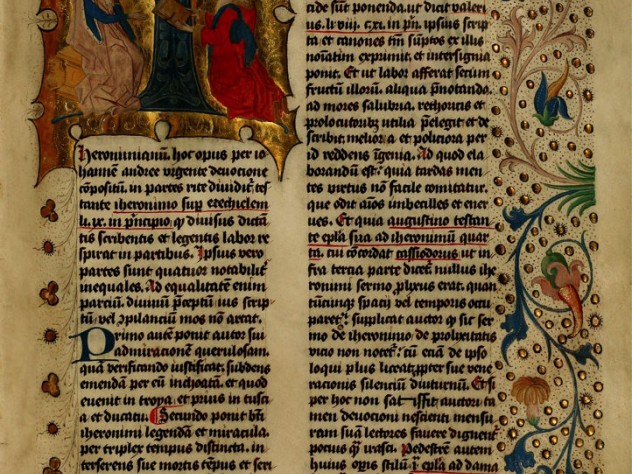 Heronimianum. hoc opus per io
hannem andree vigente deuocione
cōpositū. in partes rite diuidit. tes
tante iheronimo sup ezechielem
li. ix. in p̄ncipio. q̄ diuisus dictā
tis scribentis et legentis labor re
spirat in partibus. Ipsius vero
partes sunt quatuor notabilit̄
inequales. Ad equalitatē enim
parciū. diuinū p̄ceptū ius scrip
tū vel
mos non artat.
Primo autē ponit autor sui
admiracionē querulosam.
quā verificando iustificat. subdens
emendam per eū inchoatā. et quod
euenit in troya. et prius in tusci
a et ducatu. Secundo ponit btī
iheronimi legendā et miracula.
per triplex tempus distincta. in
terserens sue mortis tēpus et seri
cide sūt ponenda. ut dicit valeri
us. li viii. in pn. ipsius scrip
ta et canones tm̄ suptos ex illis
nouatim exprimit. et intersignia
ponit. Et ut labor afferat secum
fructū illorū. aliqua p̄notando.
ad mores salubria. rethoricis et
prolocutoribz utilia p̄elegit et de
scribit. meliora et policiora per
id reddens īgenia. Ad quod ela
borandū est. quia tardas men
tes virtus non facile comitatur.
que odit aīos imbecilles et ener
ues. Et quia augustino testan
te ep̄la sua ad iheronimū quar
ta. cui cōcordat cassiodorus ut in
fra tercia parte dicet̄. nullus ihe
ronimi sermo plixus erat. quan
tūcūqz spacij vel temporis occu
paret. supplicat autor q̄ sic ser
mo de iheronimo. de prolixitatis
vicio non notet̄. cū eciā de ipso
loqui plus liceat. pp̄ter sue vene
racionis silenciū diuturnū. Et si
per hoc non satisfit. auctori ta
men deuocioni nescienti mensu
ram suā lectores fauere dignent̄
pocius q̄ irasci. Pedestre autem
huius opis stilū. ep̄la ad dama